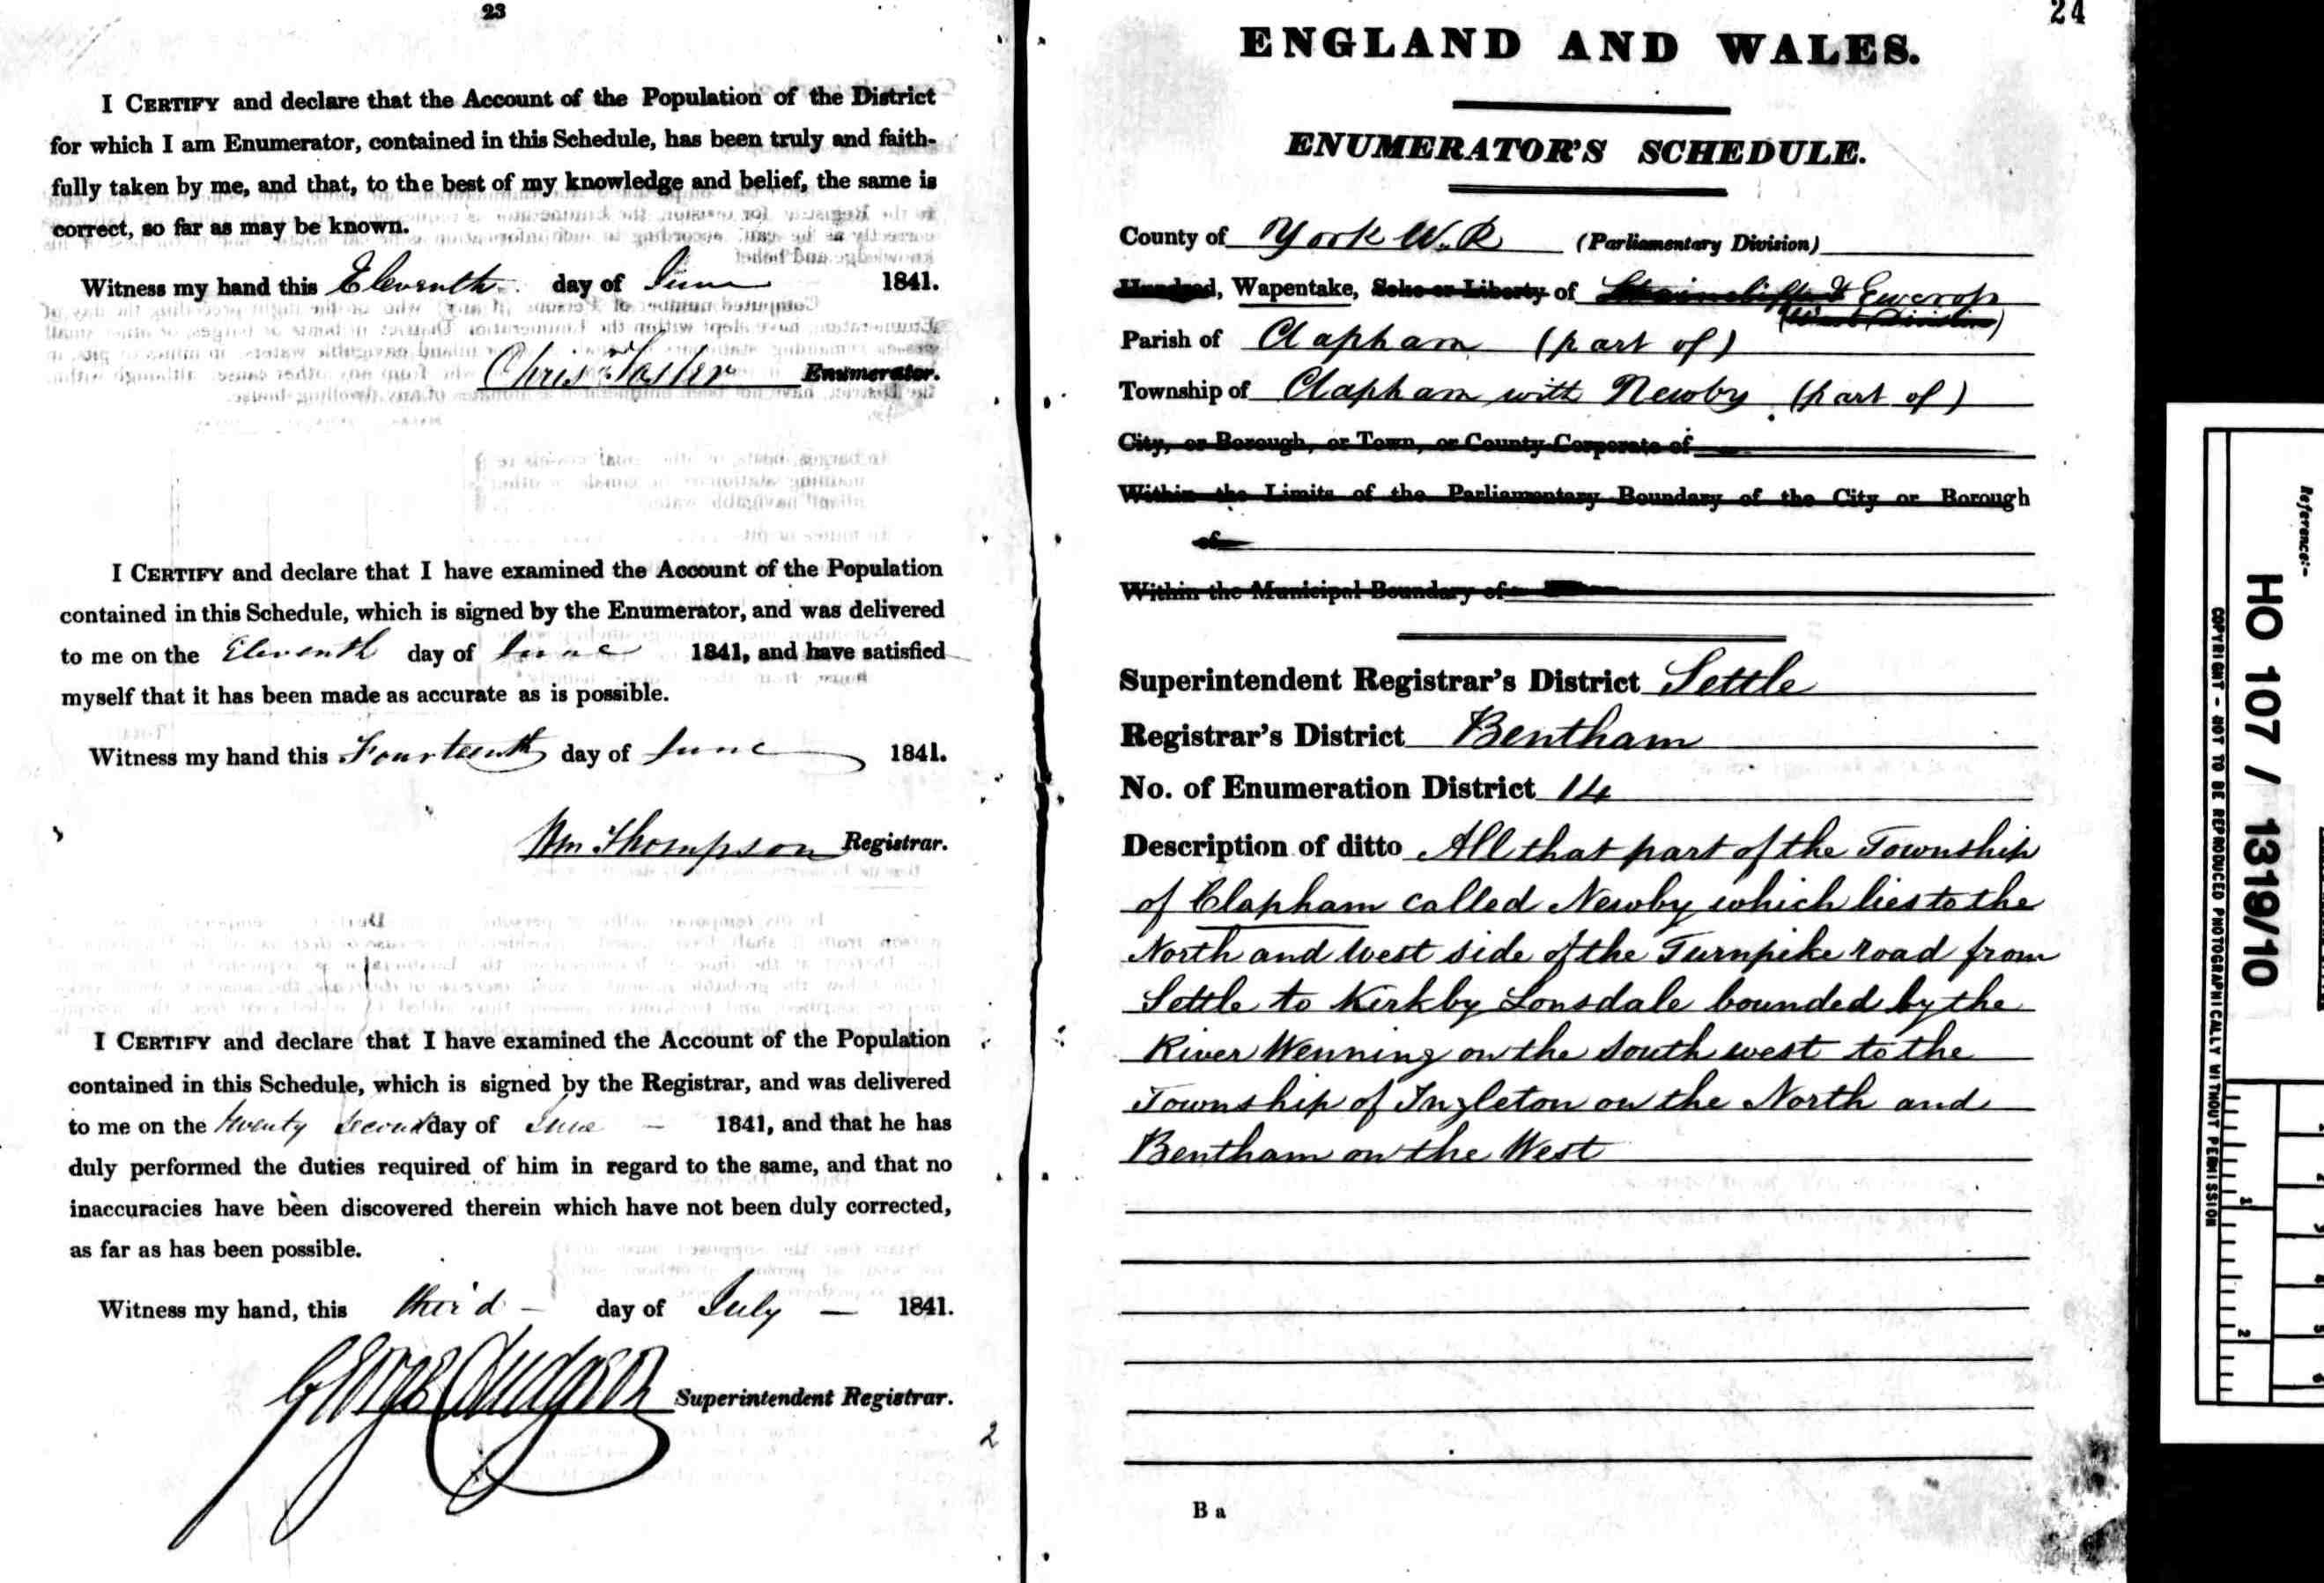 23
I CERTIFY and declare that the Account of the Population of the District
for which I am Enumerator, contained in this Schedule, has been truly and faith-
fully taken by me, and that, to the best of my knowledge and belief, the same is
correct, so far as may be known.
Witness my hand this Eleventh day of June 1841.
Enumerator.
I CERTIFY and declare that I have examined the Account of the Population
contained in this Schedule, which is signed by the Enumerator, and was delivered
to me on the Eleventh day of June 1841, and have satisfied
myself that it has been made as accurate as is possible.
Witness my hand this Fourteenth day of June 1841.
Wm Thompson Registrar.
I CERTIFY and declare that I have examined the Account of the Population
contained in this Schedule, which is signed by the Registrar, and was delivered
to me on the twenty second day of June - 1841, and that he has
duly performed the duties required of him in regard to the same, and that no
inaccuracies have been discovered therein which have not been duly corrected,
as far as has been possible.
Witness my hand, this third - day of July - 1841.
George Superintendent Registrar.
2
24
ENGLAND AND WALES.
ENUMERATOR'S SCHEDULE.
County of York W. R (Parliamentary Division)
Hundred, Wapentake, Soke or Liberty of Staincliffe & Ewcross
(West Division)
Parish of Clapham (part of)
Township of Clapham with Newby (part of)
City, or Borough, or Town, or County Corporate of
Within the Limits of the Parliamentary Boundary of the City or Borough
of
Within the Municipal Boundary of
Superintendent Registrar's District Settle
Registrar's District Bentham
No. of Enumeration District 14
Description of ditto All that part of the Township
of Clapham called Newby which lies to the
North and West side of the Turnpike road from
Settle to Kirkby Lonsdale bounded by the
River Wenning on the South west to the
Township of Ingleton on the North and
Bentham on the West
B a
Reference:-
HO 107 / 1319/10
COPYRIGHT - NOT TO BE REPRODUCED PHOTOGRAPHICALLY WITHOUT PERMISSION
1
2